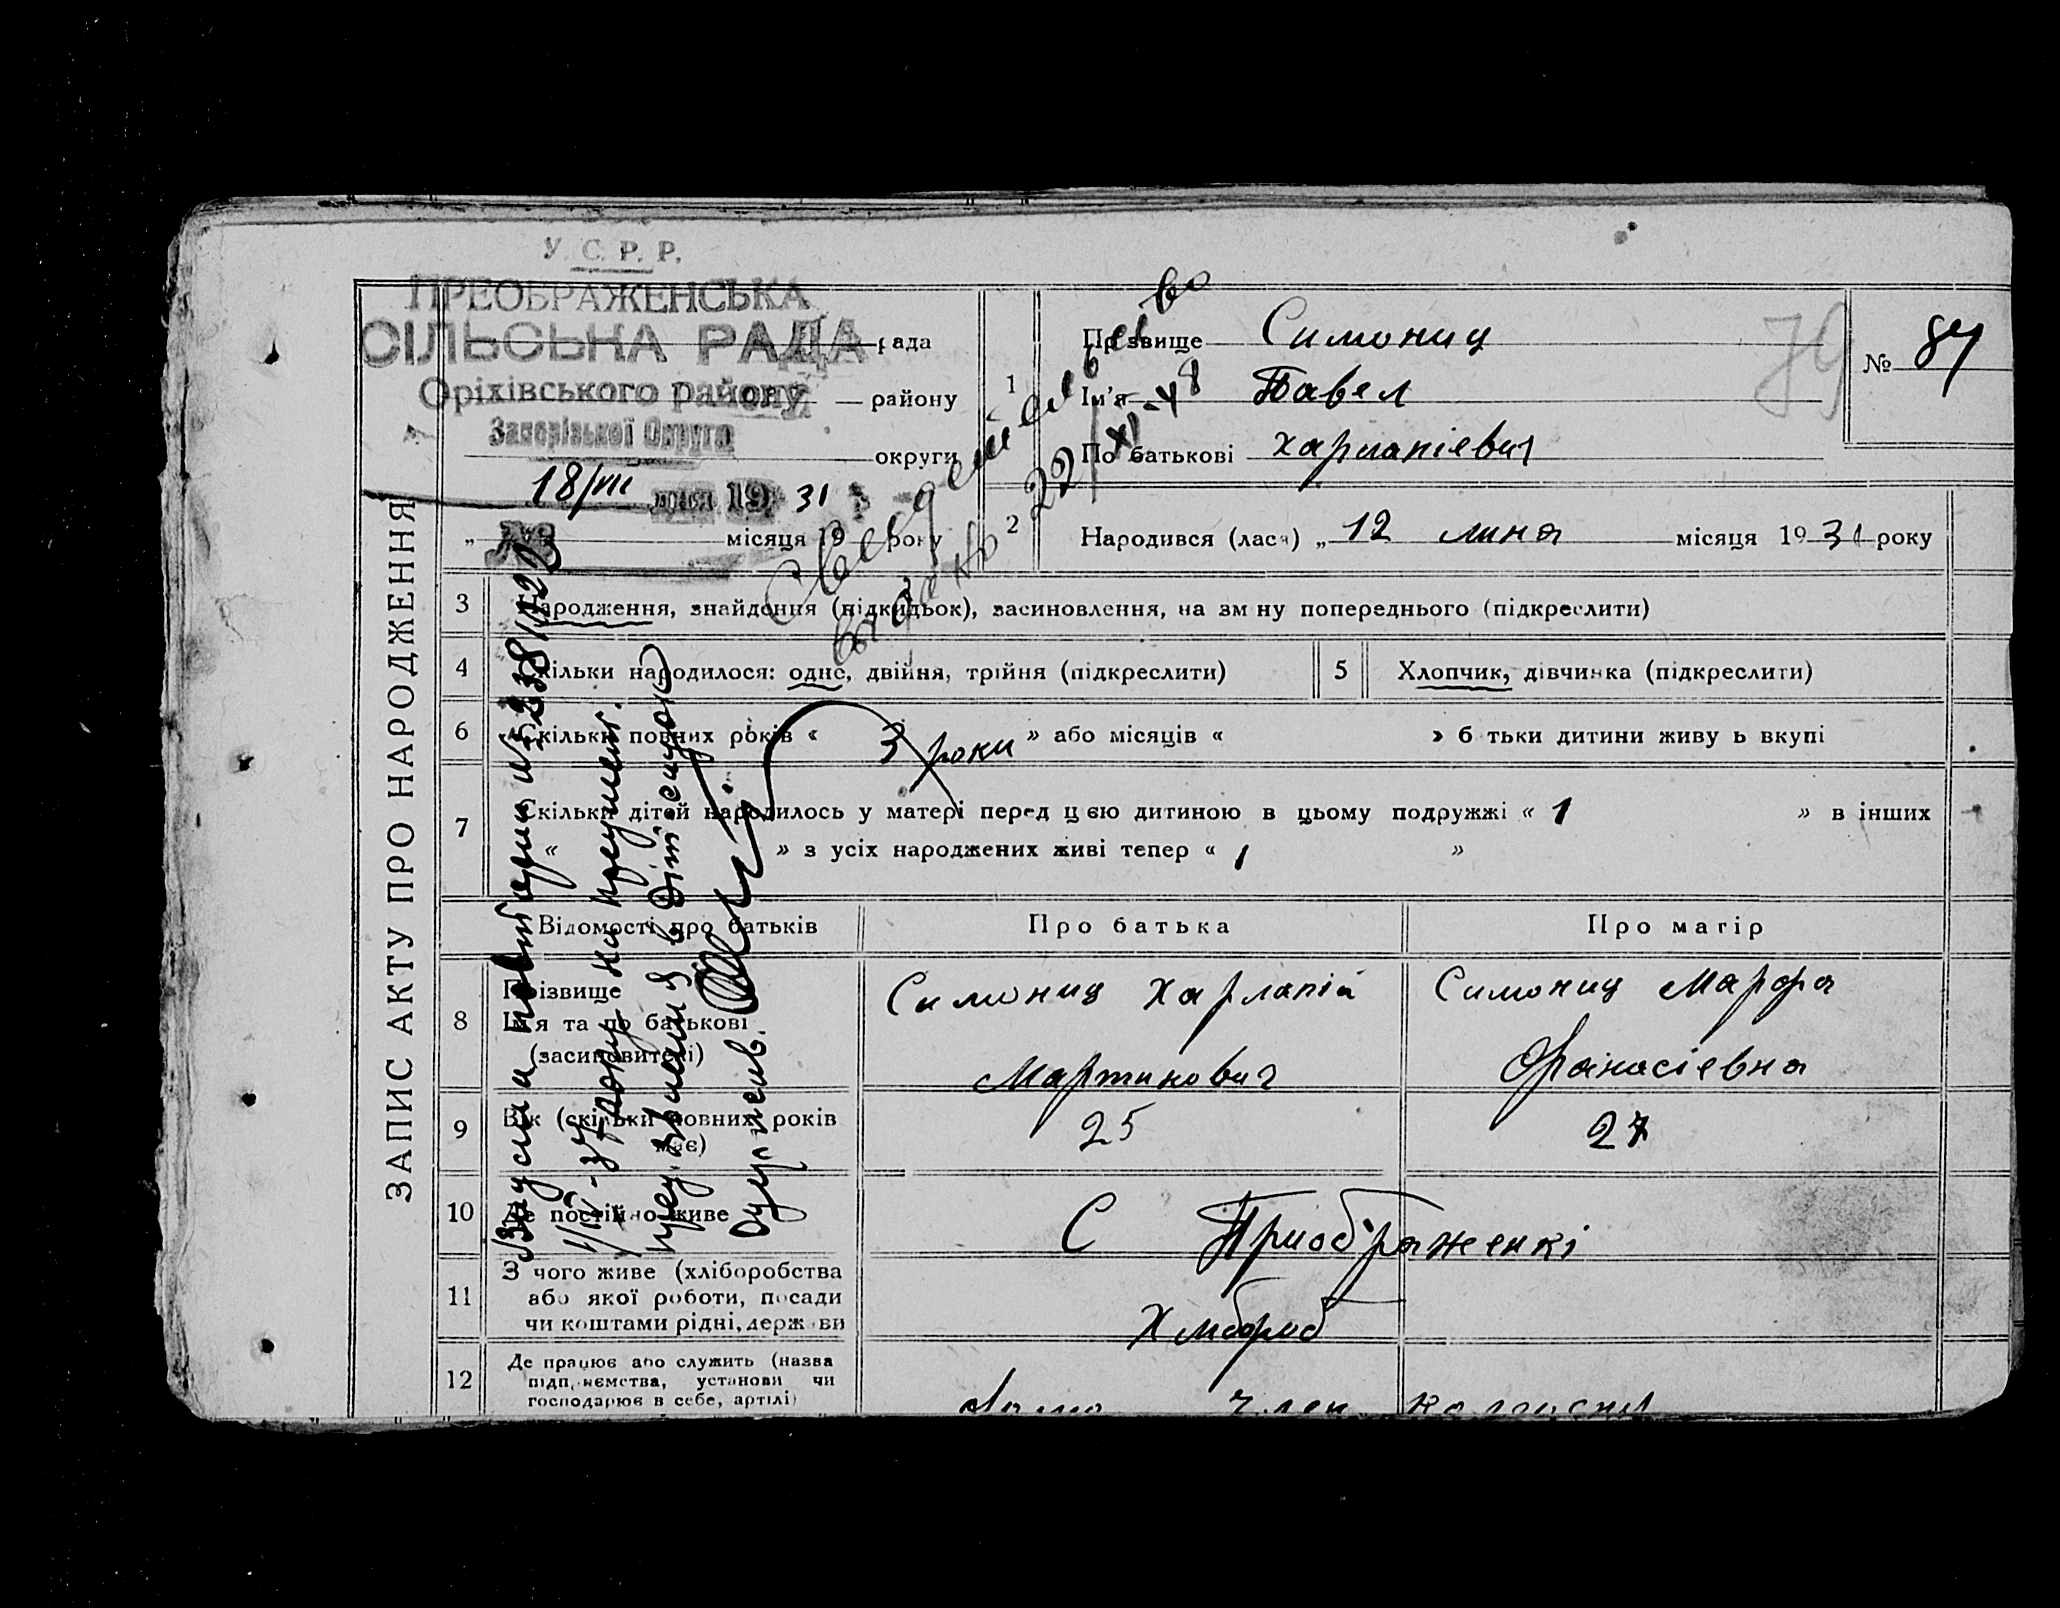 У. С. Р. Р.
ПРЕОБРАЖЕНСЬКА
СІЛЬСЬКА РАДА рада
Оріхівського району району
Запорізької Округи
округи
18/VIII дня 19 31
№
„ місяця 19 року
ЗАПИС АКТУ ПРО НАРОДЖЕННЯ
79
№ 87
1
Прізвище Симониц
Ім'я Павел
По батькові Харлапіевич
Свидетельство
выдано 22/XI-48
2 Народився (лася) „ 12 липа місяця 1931 року
3 Народження, знайдення (підкидьок), засиновлення, на зміну попереднього (підкреслити)
4 Скільки народилося: одне, двійня, трійня (підкреслити)
5 Хлопчик, дівчинка (підкреслити)
6 Скільки повних років « 3 роки » або місяців « » батьки дитини живуть вкупі
7 Скільки дітей народилось у матері перед цією дитиною в цьому подружжі « 1 » в інших
« » з усіх народжених живі тепер « 1 »
Відомості про батьків
Про батька
Про матір
8 Прізвище
Ім'я та по батькові
(засиновителі)
Симониц Харлапій
Мартинович
Симониц Марфа
Офанасіевна
9 Вік (скільки повних років має)
25
27
10 Де постійно живе
С Приображенкі
11 З чого живе (хліборобства
або якої роботи, посади
чи коштами рідні, держави
Хлібороб
12 Де працює або служить (назва
підприємства, установи чи
господарює в себе, артілі)
член колгоспу